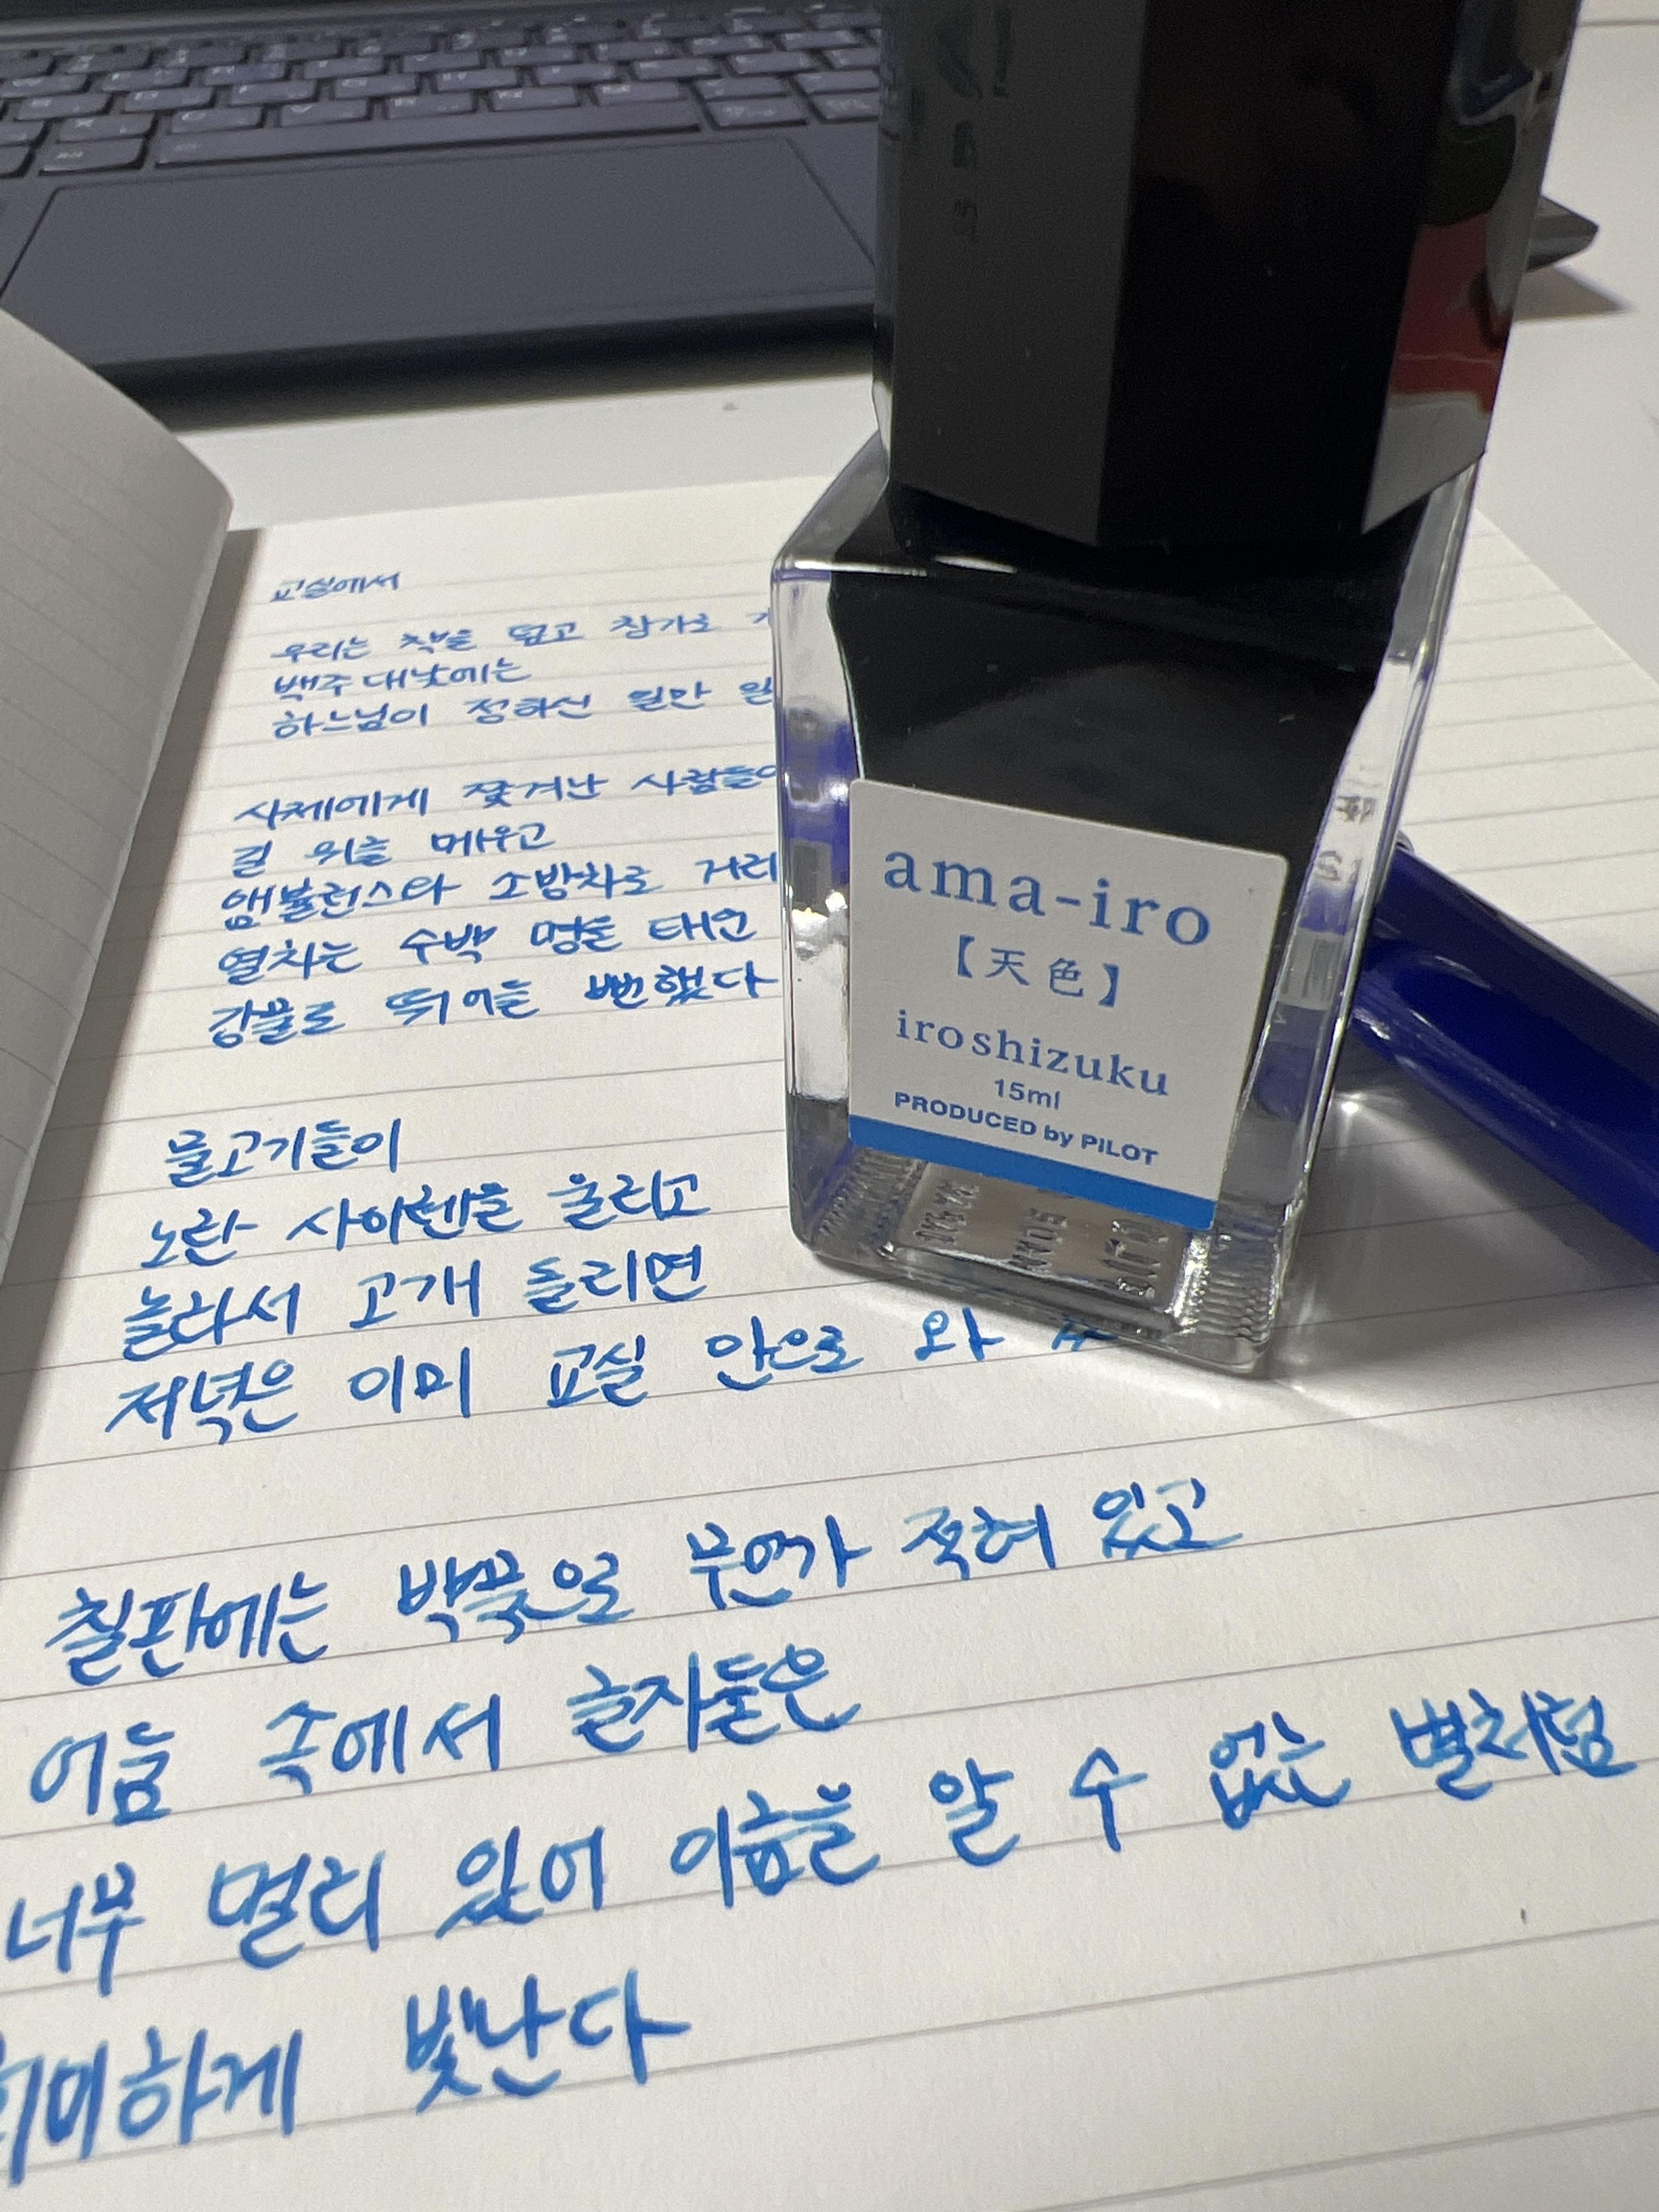 교실에서
우리는 책을 덮고 창가로
백주 대낮에는
하느님이 정하신 일만
사제에게 쫓겨난 사람들이
길 위를 메우고
앰뷸런스와 소방차로 거리
열차는 수백 명을 태운
강물로 뛰어들 뻔했다
물고기들이
노란 사이렌을 울리고
놀라서 고개 돌리면
저녁은 이미 교실 안으로 와
칠판에는 백묵으로 무언가 적혀 있고
어둠 속에서 글자들은
너무 멀리 있어 이름을 알 수 없는 별처럼
희미하게 빛난다
ama-iro
【天色】
iroshizuku
15ml
PRODUCED by PILOT